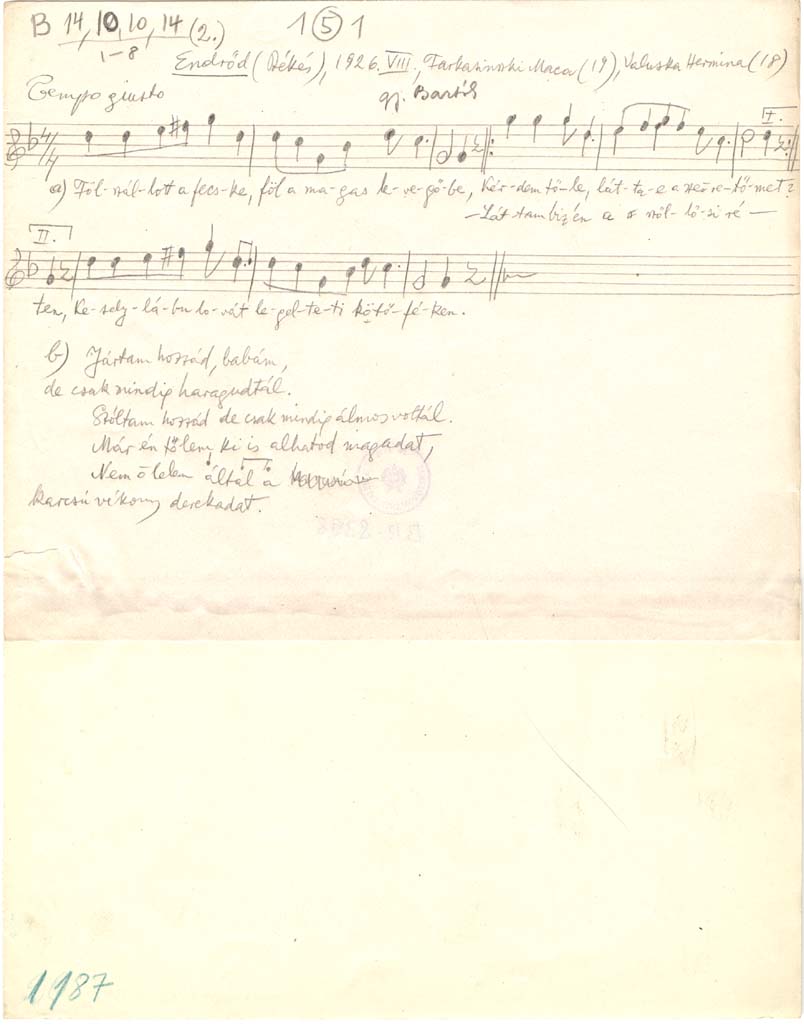 B 14, 10, 10, 14 (2.) 1 (5) 1
1-8
Endrőd (Békés), 1926. VIII., Maca (19), Valuska Hermina (18)
Tempo giusto gy. Bartók
4/4 I.
a) Föl-szál-lott a fecs-ke, föl a ma-gas le-ve-gő-be, Kér-dem tő-le, lát-ta-e a sze-re-tő-met?
- Lát-tam biz én a szől-lő-si ré -
II.
ten, Ke-sely-lá-bu lo-vát le-gel-te-ti kötő-fé-ken.
b) Jártam hozzád, babám,
de csak mindig haragudtál.
Szóltam hozzád de csak mindig álmos voltál.
Már én tőlem ki is alhatod magadat,
Nem ölelem által a
karcsú vékony derekadat.
BR-
1987